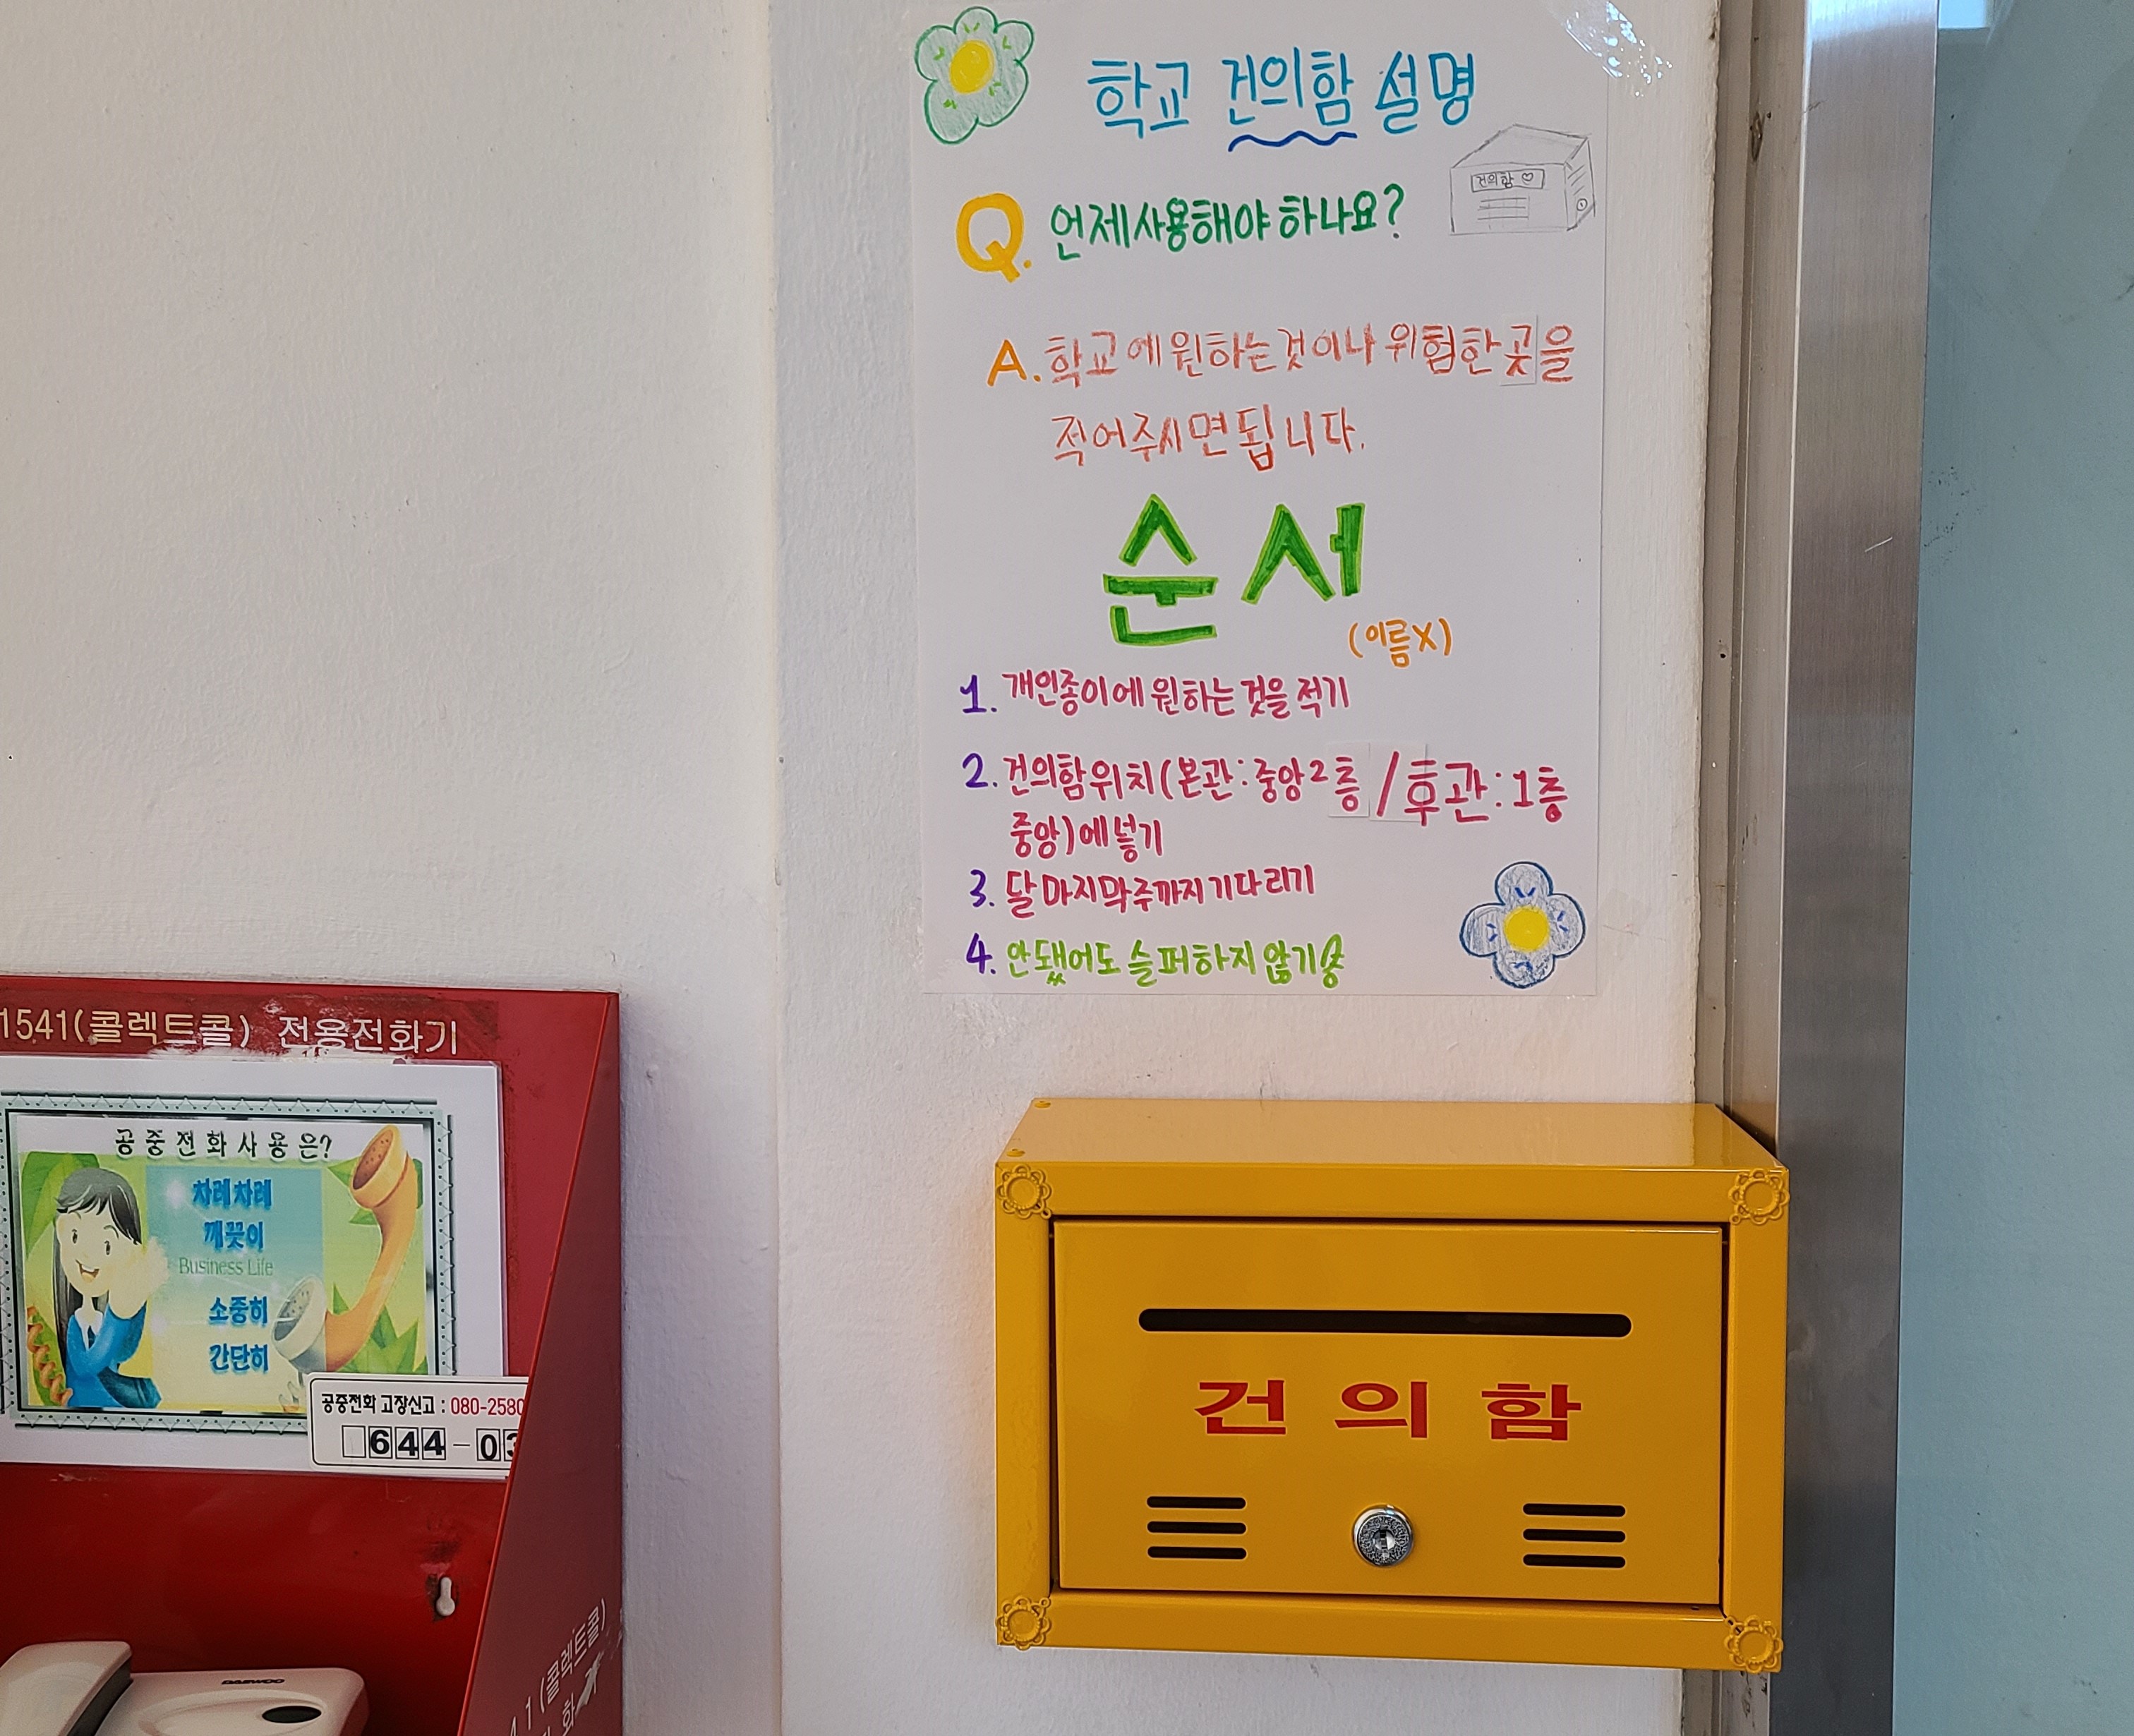 학교 건의함 설명
건의함 ♡
Q. 언제사용해야하나요?
A. 학교에원하는것이나 위험한곳을
적어주시면됩니다.
순서
(이름X)
1. 개인종이에 원하는것을적기
2. 건의함위치(본관:중앙2층/후관:1층
중앙)에넣기
3. 달마지막주까지기다리기
4. 안됐어도 슬퍼하지 않기
건의함
1541(콜렉트콜) 전용전화기
공중전화사용은?
차례차례
깨끗이
Business Life
소중히
간단히
공중전화 고장신고 : 080-2580
644-03
DAEWOO
1 (콜렉트콜)
화